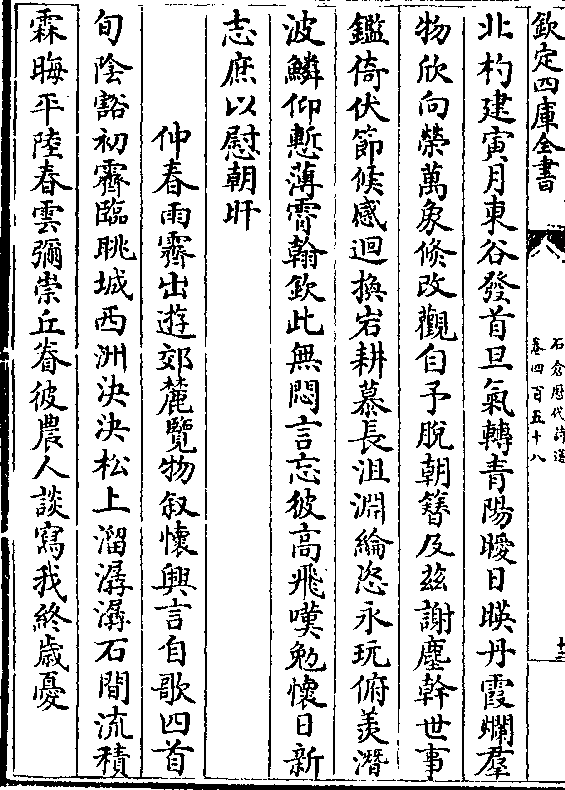 欽定四庫全書
石倉歷代詩選
卷四百五十八
十三
北杓建寅月東谷發首旦氣轉青陽曖日暎丹霞爛羣
物欣向榮萬象倐改觀自予脫朝簪及茲謝塵幹世事
鑑倚伏節候感迴換岩耕慕長沮淵綸恣永玩俯羨潛
波鱗仰慙薄霄翰欽此無悶言忘彼高飛嘆勉懷日新
志庶以慰朝旰
仲春雨霽出遊郊麓覽物叙懷興言自歌四首
旬陰豁初霽臨眺城西洲決決松上溜潺潺石間流積
霖晦平陸春雲彌崇丘眷彼農人談寫我終歳憂